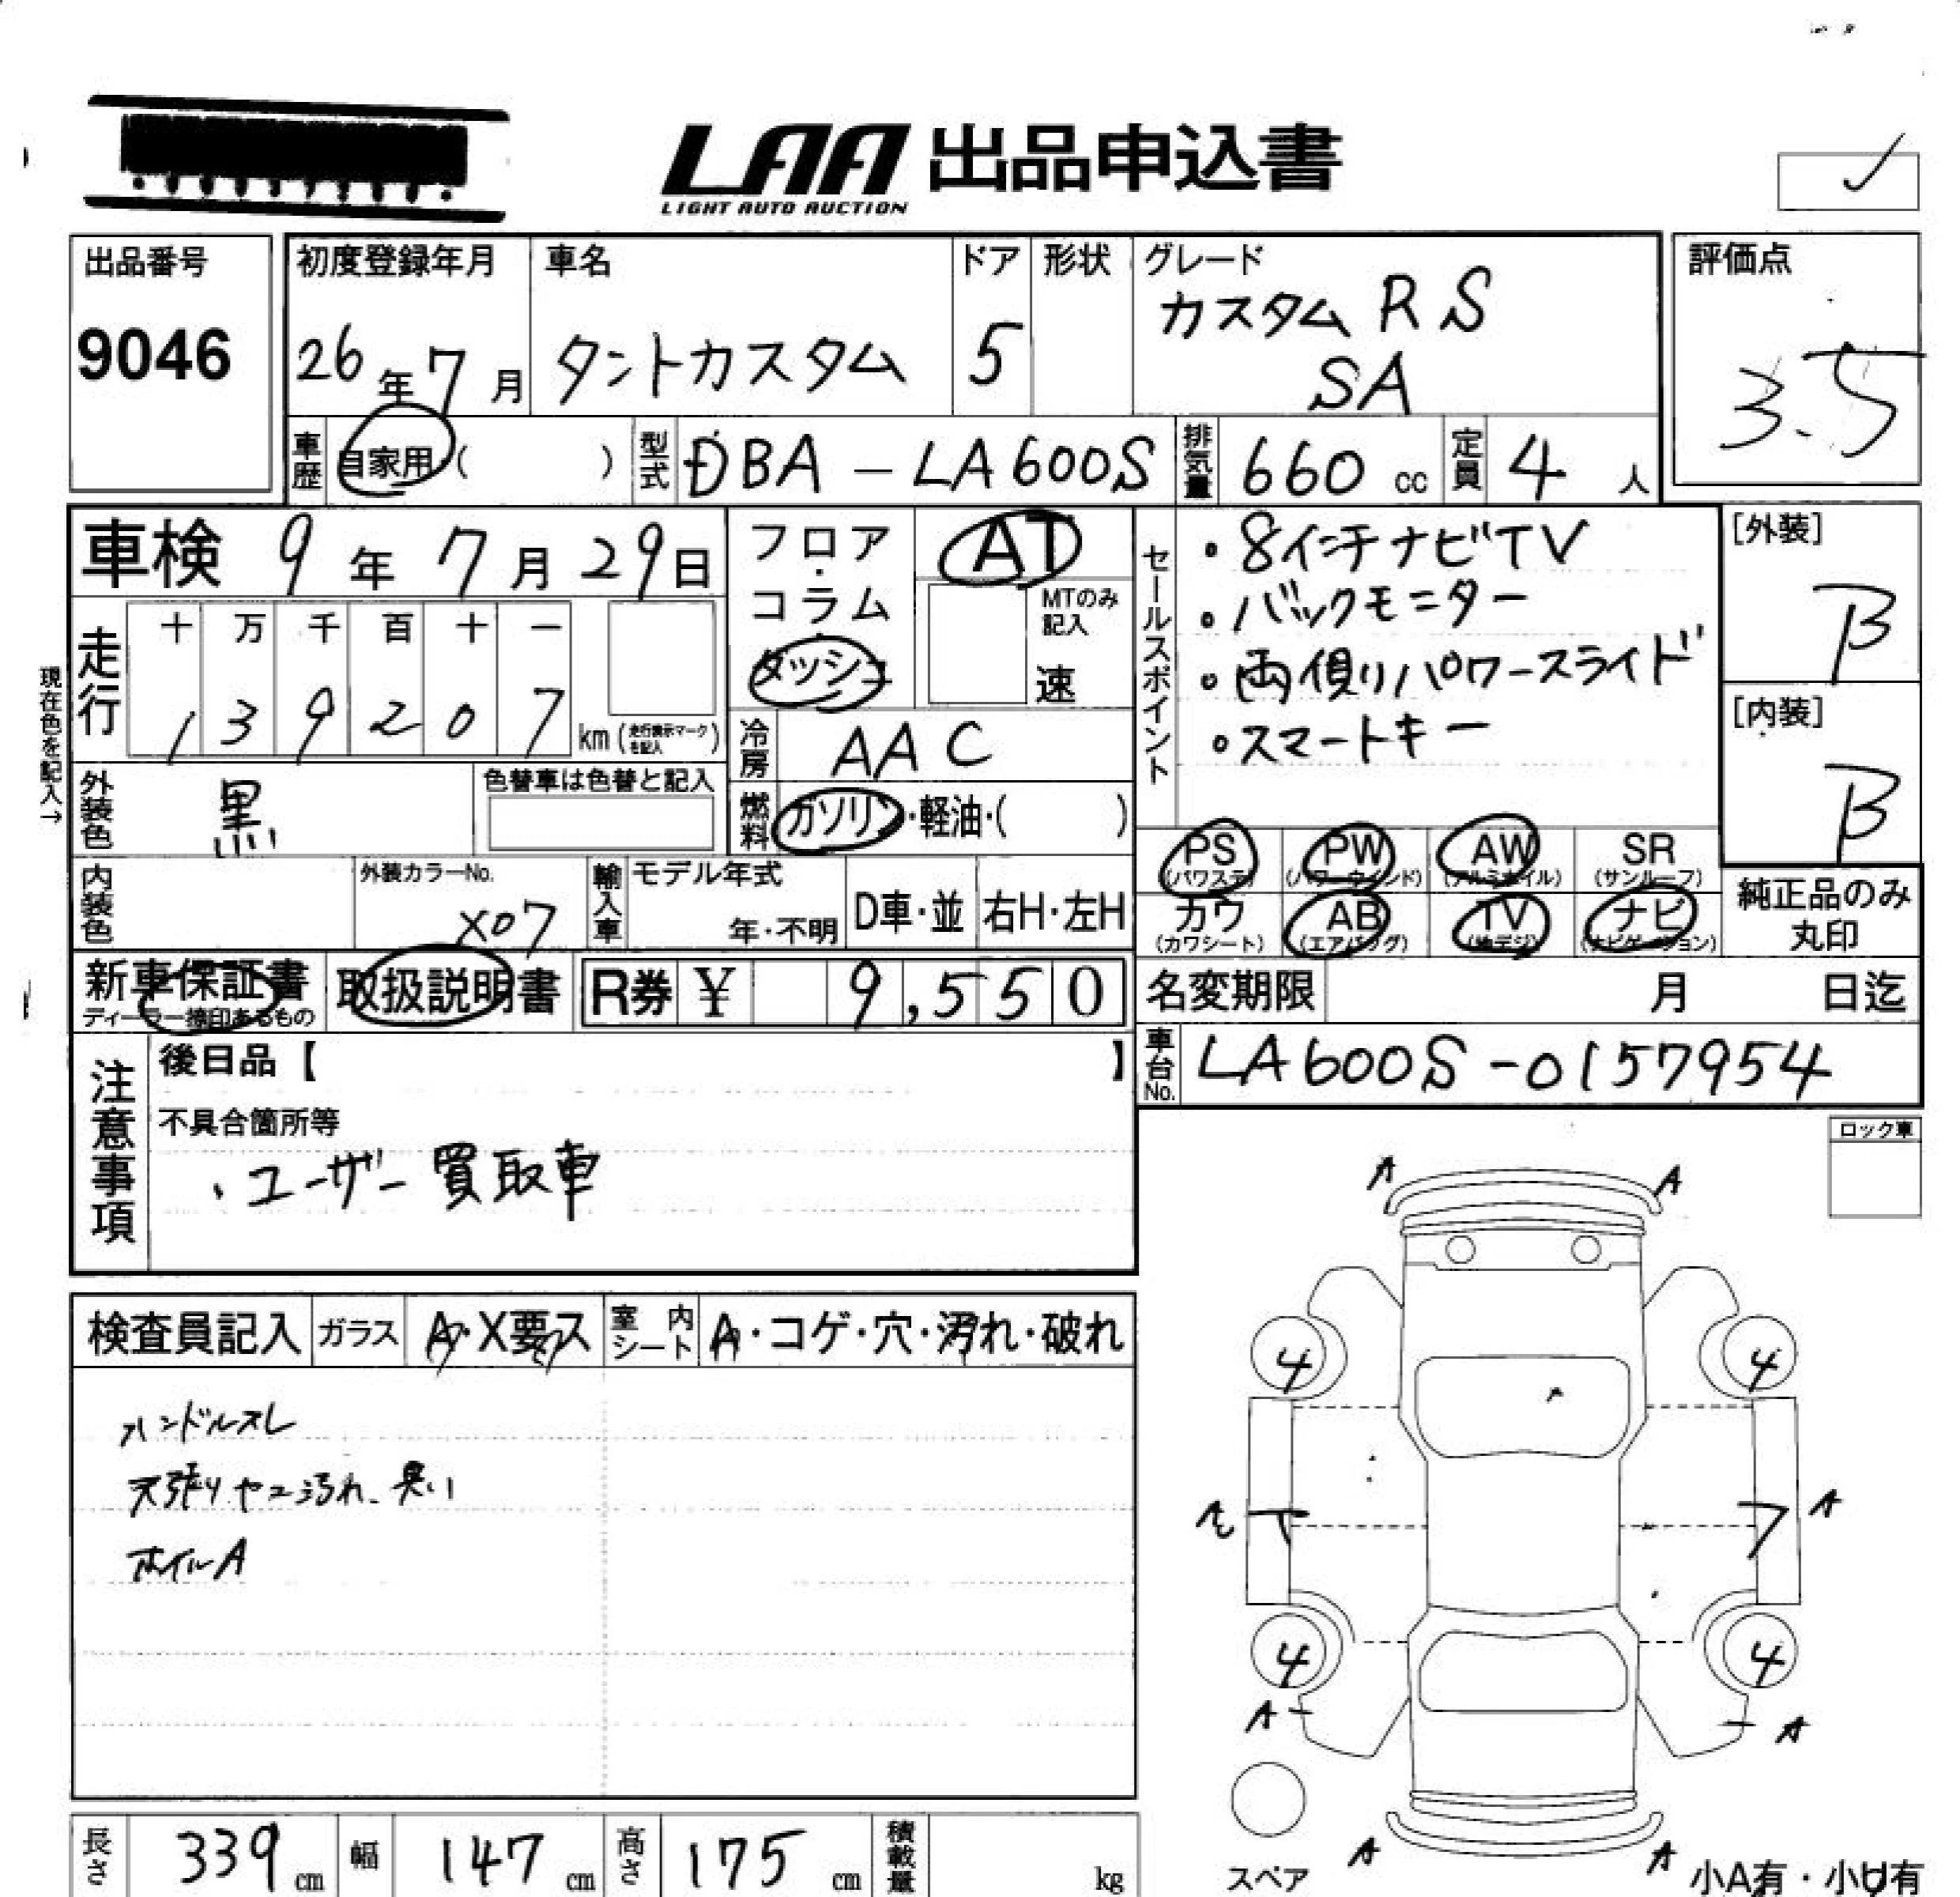 LAA 出品申込書
LIGHT AUTO AUCTION
出品番号
9046
初度登録年月
26年7月
車名
タントカスタム
ドア
5
形状
グレード
カスタム RS
SA
評価点
3.5
車歴
自家用 ( )
型式
DBA-LA600S
排気量
660 cc
定員
4 人
車検 9年7月29日
走行
十 万 千 百 十 一
1 3 9 2 0 7 km (走行表示マークを記入)
現在色を記入→
フロア・コラム・ダッシュ
AT
MTのみ記入
速
冷房
AAC
燃料
ガソリン・軽油・( )
外装色
黒
色替車は色替と記入
内装色
外装カラーNo.
X07
輸入車
モデル年式
年・不明
D車・並
右H・左H
セールスポイント
・8インチナビTV
・バックモニター
・両側パワースライド
・スマートキー
[外装]
B
[内装]
B
PS (パワステ)
PW (パワーウインド)
AW (アルミホイル)
SR (サンルーフ)
カワ (カワシート)
AB (エアバッグ)
TV (地デジ)
ナビ (ナビゲーション)
純正品のみ丸印
新車保証書
ディーラー捺印あるもの
取扱説明書
R券 ¥ 9,550
名変期限 月 日迄
車台No.
LA600S-0157954
注意事項
後日品【 】
不具合箇所等
・ユーザー買取車
ロック車
検査員記入
ガラス
A・X要ス
室内シート
A・コゲ・穴・汚れ・破れ
ハンドルスレ
天張りヤニ汚れ、臭い
ホイルA
A A
4 4
A
4 4
A A
A A
スペア
小A有・小U有
長さ 339 cm
幅 147 cm
高さ 175 cm
積載量 kg